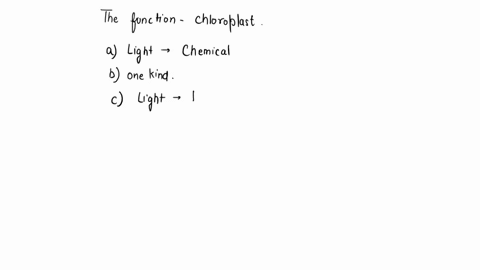 The function - chloroplast.
a) Light → Chemical
b) one kind.
c) Light →